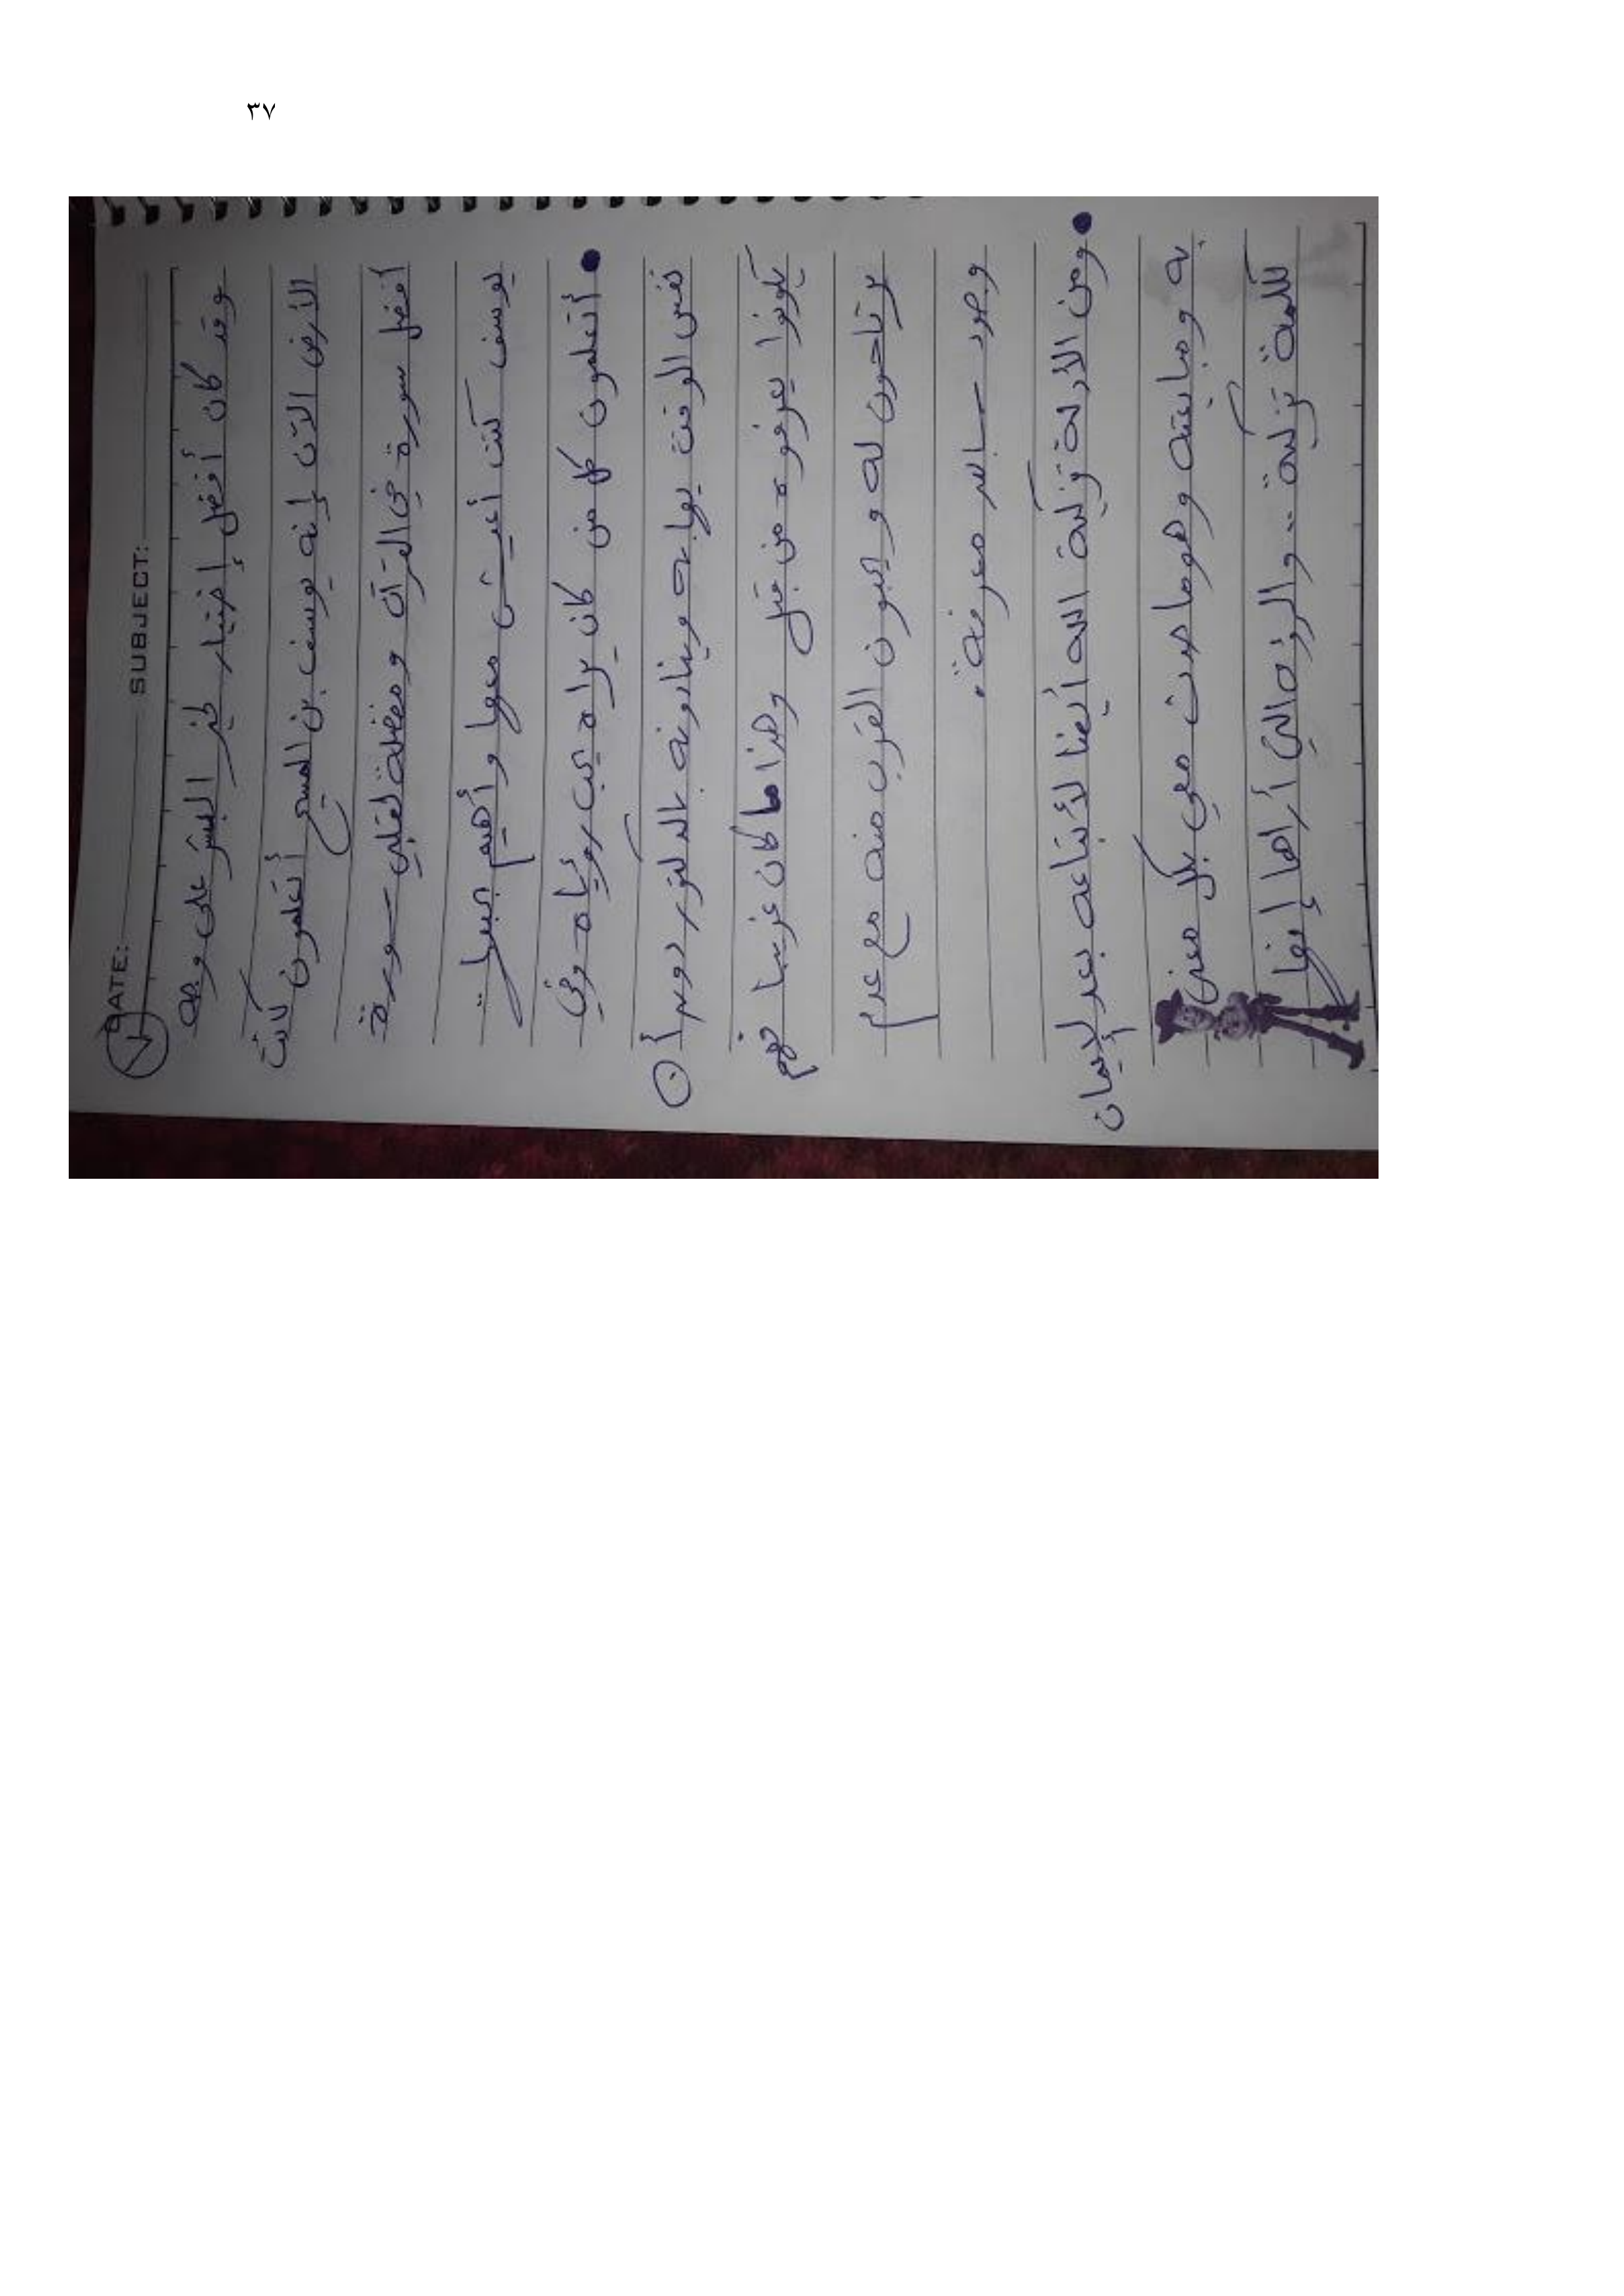 ٣٧
DATE: SUBJECT:
٧
وقد كان أفضل إختيار لخير البشر على وجه
الأرض الآن إنه يوسف بن المسيح أتعلمون كانت
أفضل سورة في القرآن ومفضلة لقلبي سورة
يوسف كنت أعيش معها وأهيم بحبها
أتعلمون كل من كان يراه يحب رؤياه وفي
نفس الوقت يهابه وينادونه بالدكتور دون أن
يكونوا يعرفوه من قبل وهذا ما كان غريبا فهم
يرتاحون له ويحبون القرب منه مع عدم
وجود سابق معرفة.
ومن الأدلة تزكية الله أيضا لأتباعه بعد الإيمان
به ومبايعته وهو ما حدث معي بكل معنى
لكلمة تزكية .. والرؤى التي أراها إنها